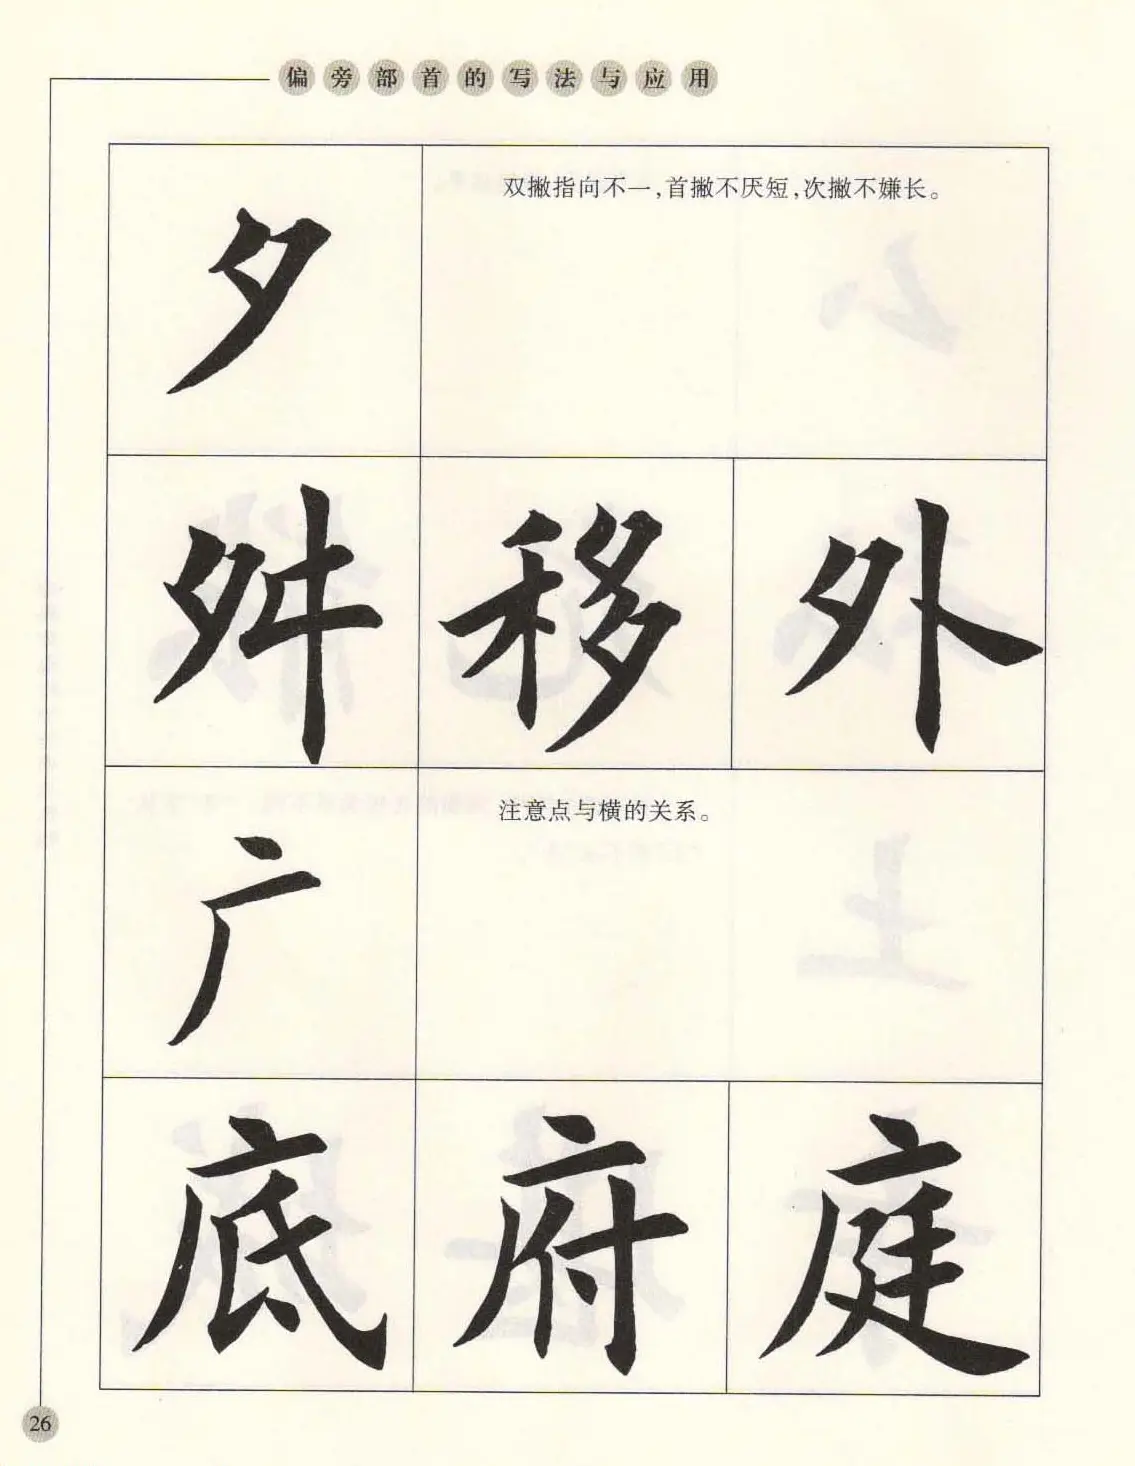 偏旁部首的写法与应用
夕
双撇指向不一，首撇不厌短，次撇不嫌长。
舛 移 外
广
注意点与横的关系。
底 府 庭
26